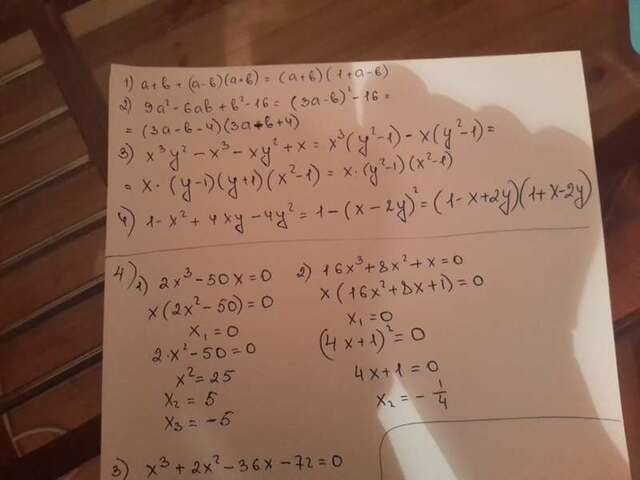 1) a+b+(a-b)(a+b) = (a+b)(1+a-b)
2) 9a²-6ab+b²-16 = (3a-b)²-16 =
= (3a-b-4)(3a-b+4)
3) x³y²-x³-xy²+x = x³(y²-1)-x(y²-1) =
= x·(y-1)(y+1)(x²-1) = x·(y²-1)(x²-1)
4) 1-x²+4xy-4y² = 1-(x-2y)² = (1-x+2y)(1+x-2y)
4) 1) 2x³-50x=0
x(2x²-50)=0
x₁=0
2·x²-50=0
x²=25
x₂=5
x₃=-5
2) 16x³+8x²+x=0
x(16x²+8x+1)=0
x₁=0
(4x+1)²=0
4x+1=0
x₂=-1/4
3) x³+2x²-36x-72=0